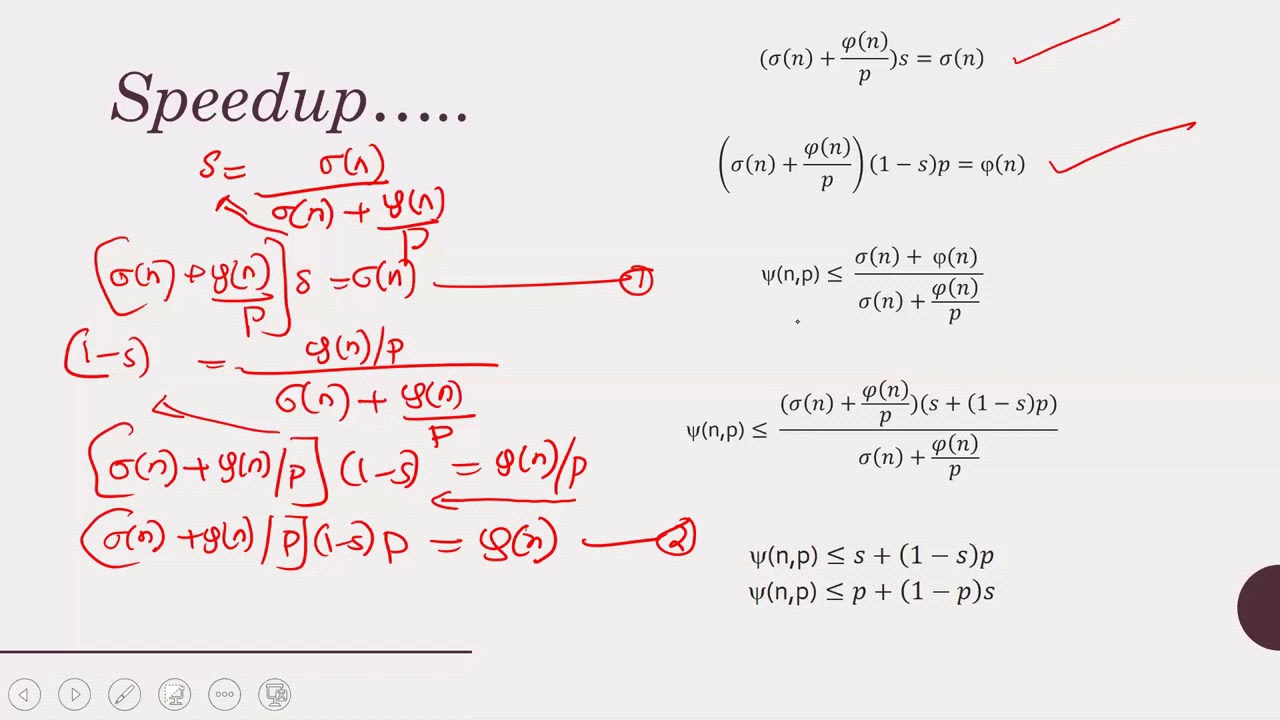 Speedup.....
s = σ(n) / (σ(n) + φ(n)/p)
[σ(n) + φ(n)/p] s = σ(n) —— ①
(1-s) = (φ(n)/p) / (σ(n) + φ(n)/p)
[σ(n) + φ(n)/p] (1-s) = φ(n)/p
(σ(n) + φ(n)/p] (1-s) p = φ(n) —— ②
(σ(n) + φ(n)/p)s = σ(n)
(σ(n) + φ(n)/p)(1 − s)p = φ(n)
ψ(n,p) ≤ (σ(n) + φ(n)) / (σ(n) + φ(n)/p)
ψ(n,p) ≤ ((σ(n) + φ(n)/p)(s + (1 − s)p)) / (σ(n) + φ(n)/p)
ψ(n,p) ≤ s + (1 − s)p
ψ(n,p) ≤ p + (1 − p)s